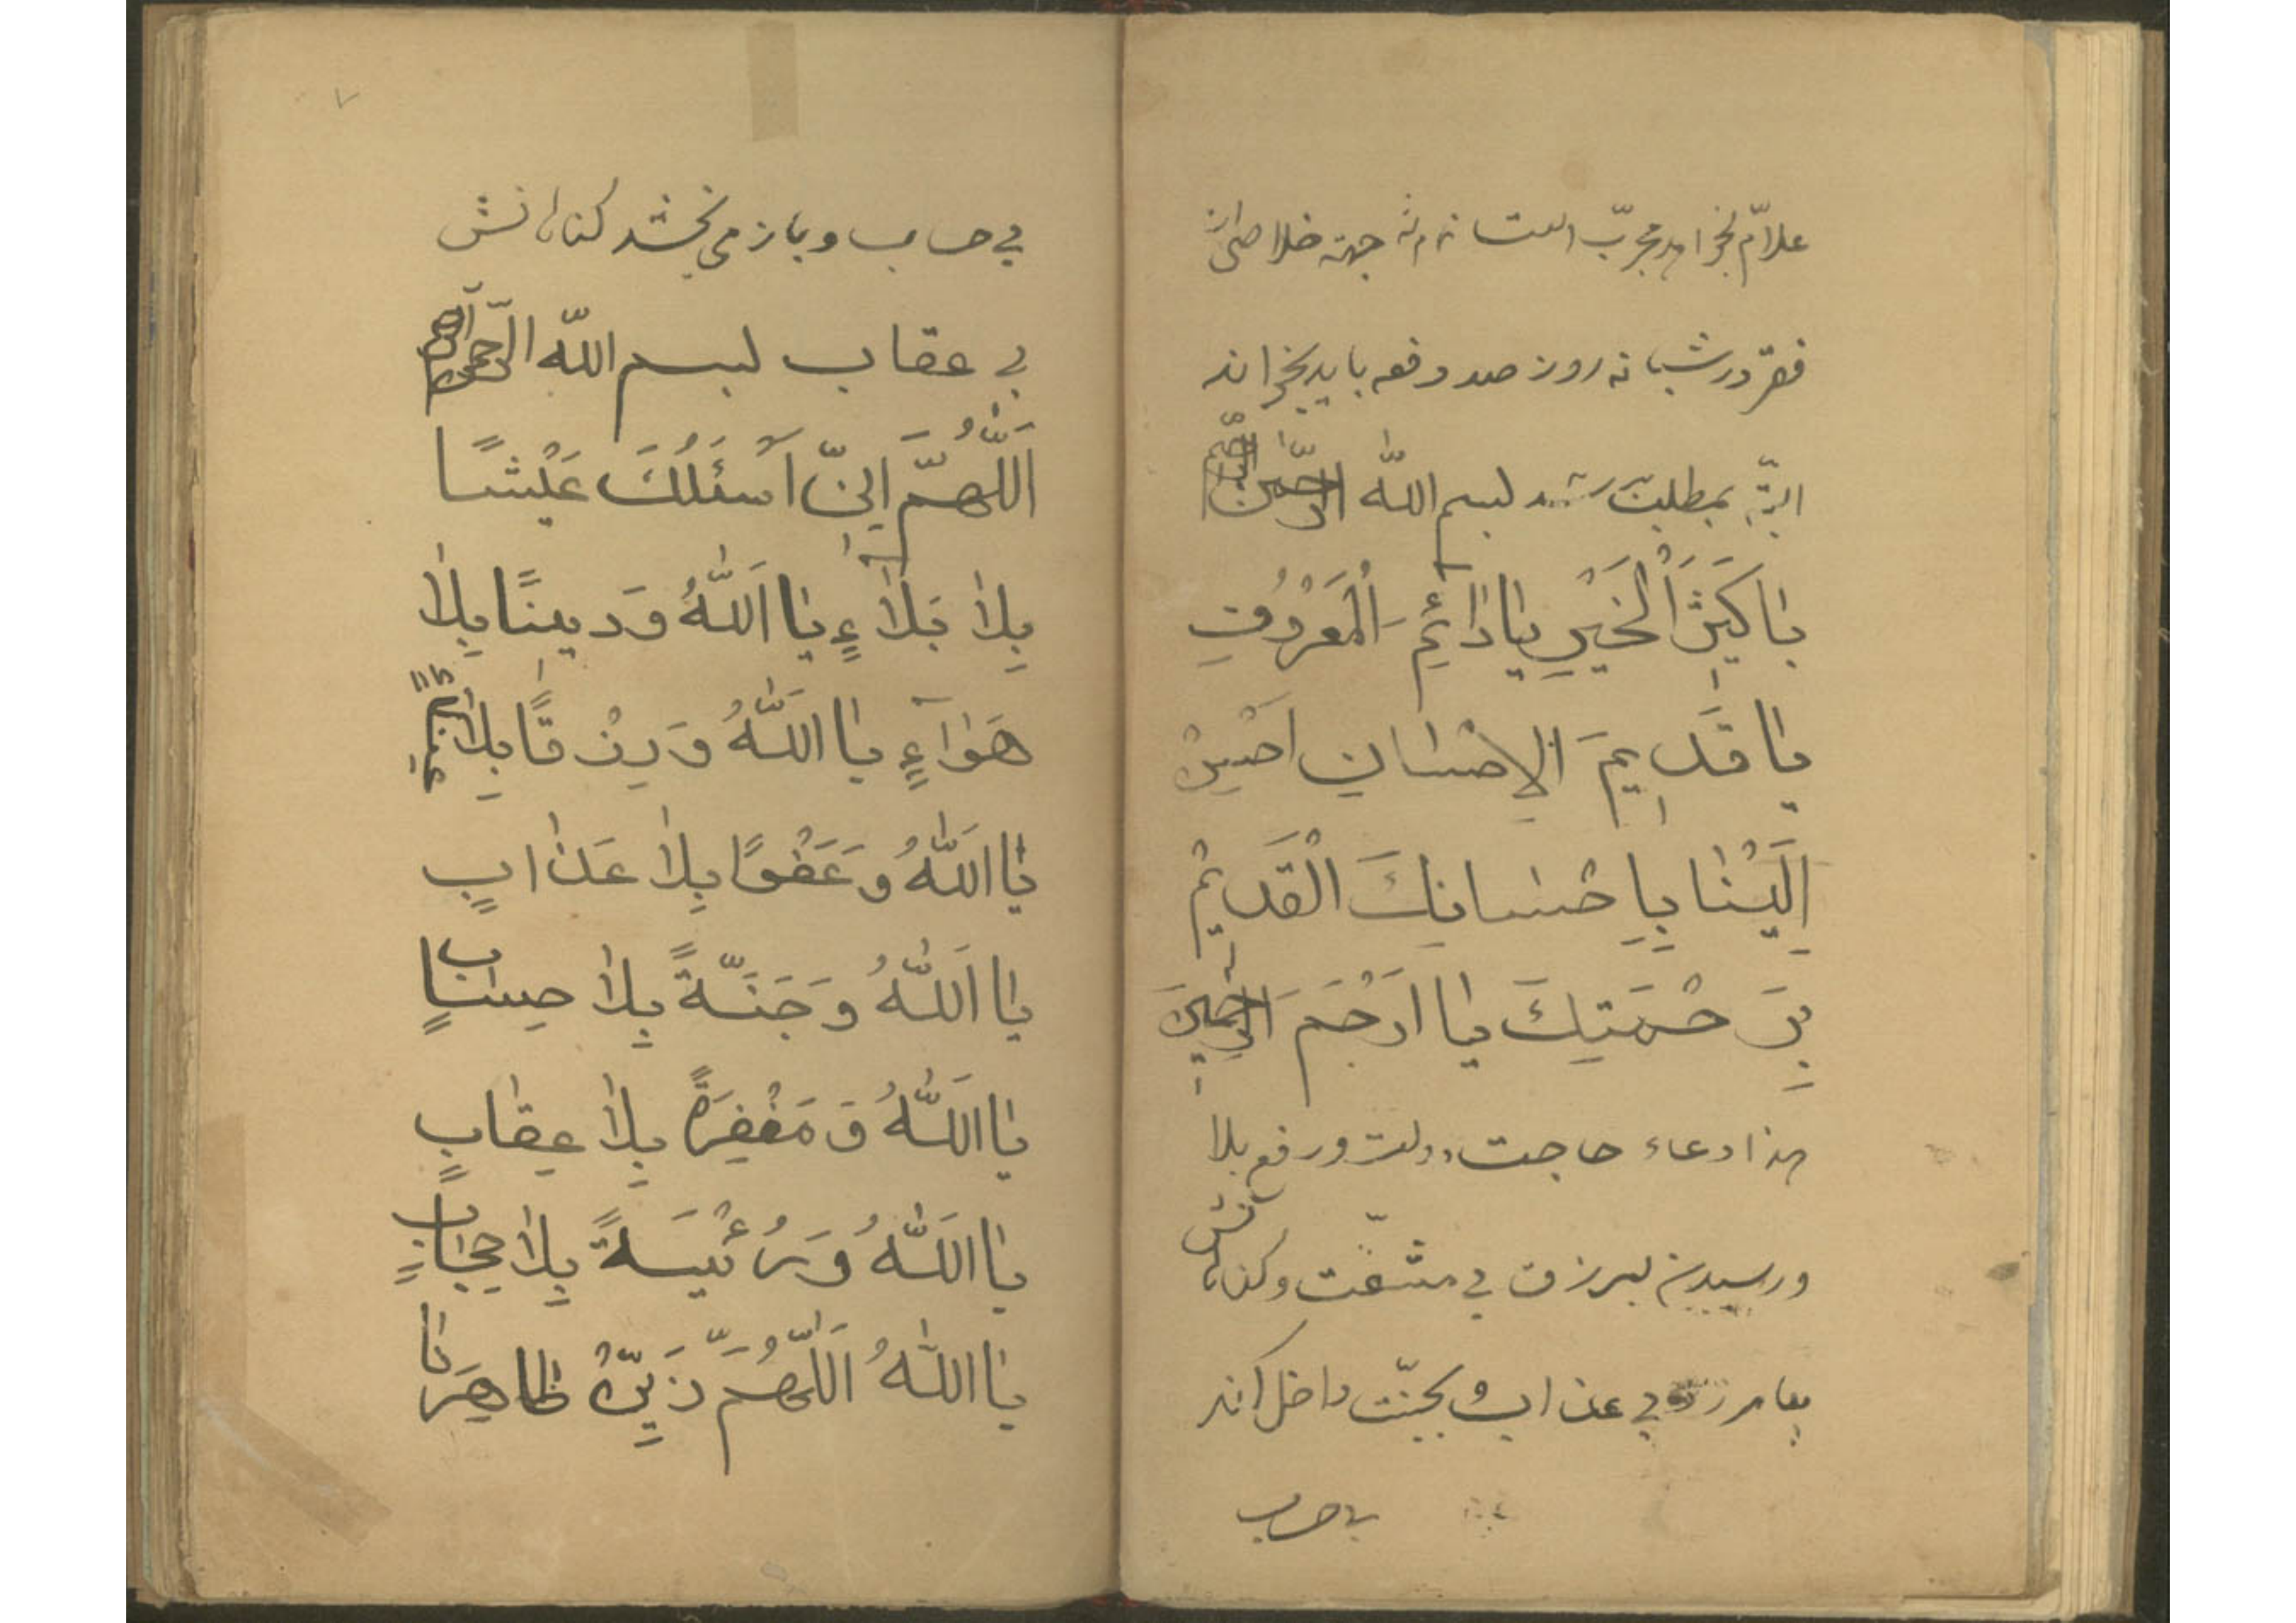 علّام بخواهد مجرّب است نه مرتبه جهته خلاصی از
فقر در شبانه روز صد دفعه باید بخواند
البتّه بمطلبت رسد بسم اللّٰه الرّحمن الرّحیم
یٰا كَثٖیرَ الْخَیْرِ یٰا دٰائِمَ الْمَعْرُوْفِ
یٰا قَدٖیمَ الِاحْسٰانِ اَحْسِنْ
اِلَیْنٰا بِاِحْسٰانِكَ الْقَدٖیمْ
بِرَحْمَتِكَ یٰا اَرْحَمَ الرّٰاحِمٖینَ
هذا دعاء حاجت دولت و رفع بلا
و رسیدن برزق بی مشقّت و کناهانش
بیامرزد بی عذاب و بجنّت داخل کند
بی حساب
۷
بی حساب و باز می بخشد کناهانش
بی عقاب بسم اللّه الرّحمن الرّحیم
اَللّٰهُمَّ اِنّٖی اَسْئَلُكَ عَیْشًا
بِلٰا بَلٰاءٍ یٰا اَللّٰهُ وَ دٖینًا بِلٰا
هَوٰآءٍ یٰا اَللّٰهُ وَ رِزْقًا بِلٰا
یٰا اَللّٰهُ وَ عَفْوًا بِلٰا عَذٰابٍ
یٰا اَللّٰهُ وَ جَنَّةً بِلٰا حِسٰابٍ
یٰا اَللّٰهُ وَ مَغْفِرَةً بِلٰا عِقٰابٍ
یٰا اَللّٰهُ وَ رُئْیَةً بِلٰا حِجٰابٍ
یٰا اَللّٰهُ اَللّٰهُمَّ زَیِّنْ ظٰاهِرَنٰا